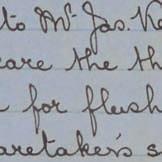 to Mr. Jas. Ke
are the th
for flush
aretaker's s